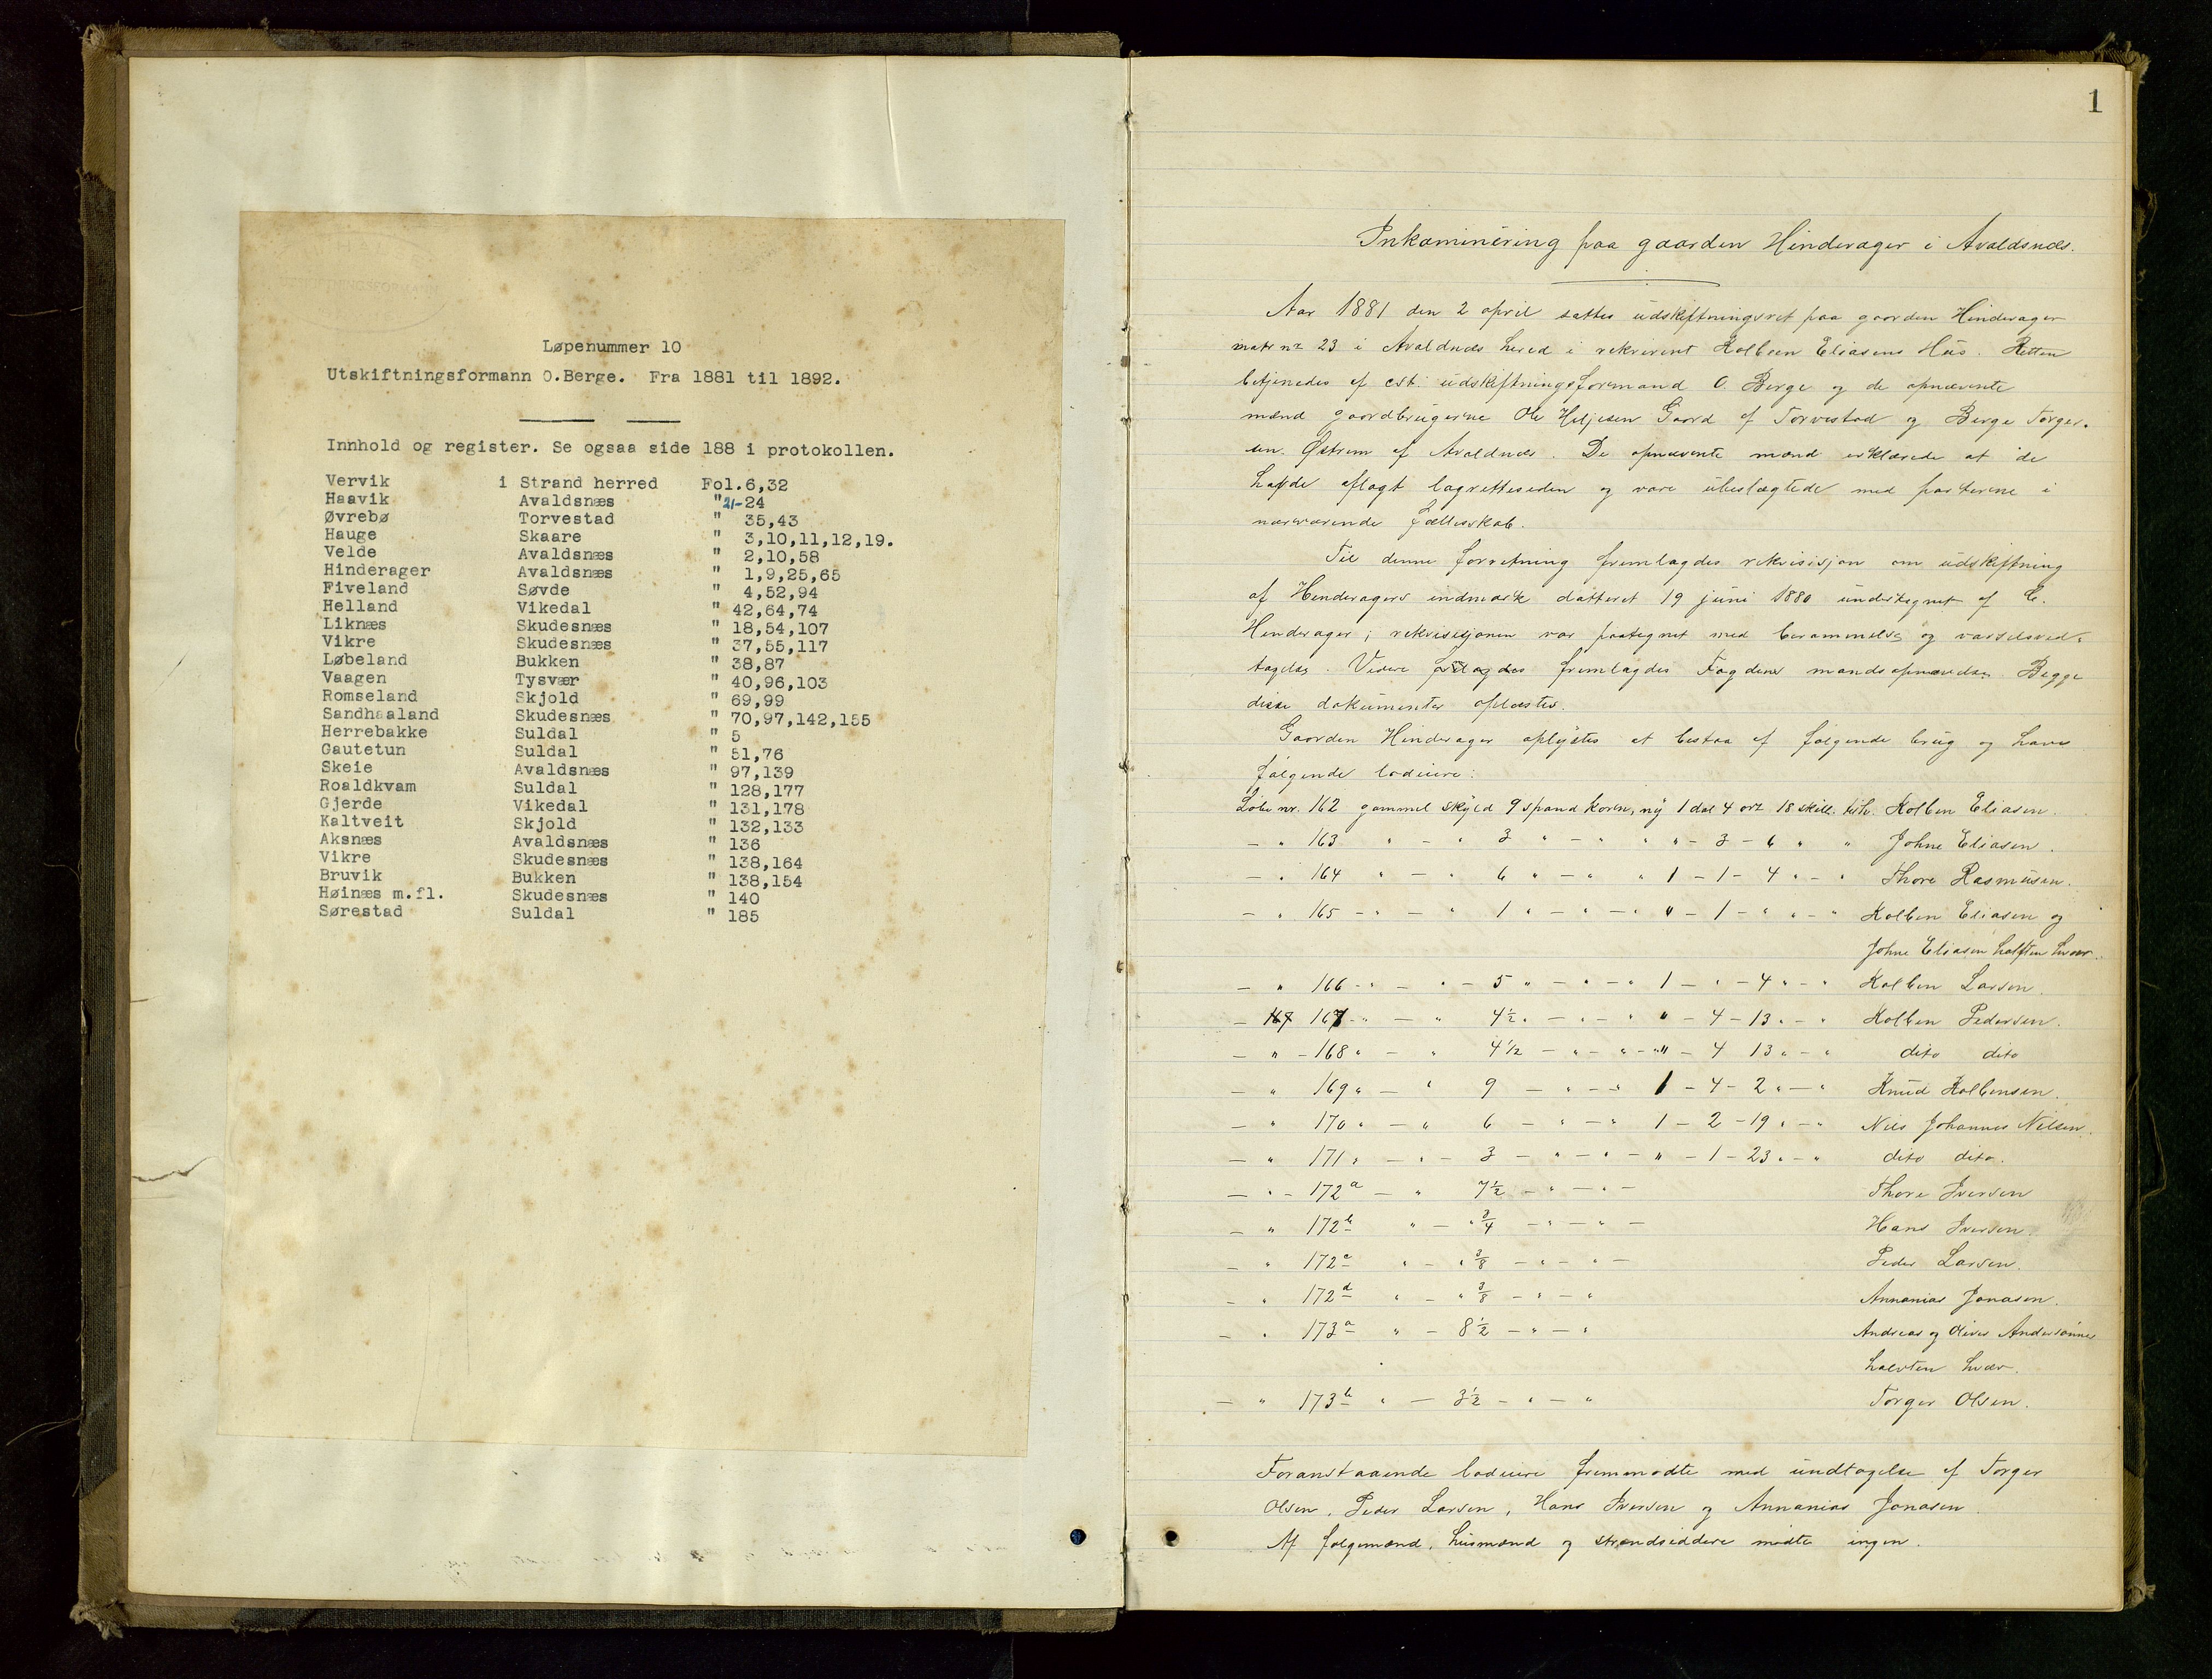 Løpenummer 10
Utskiftningsformann O.Berge. Fra 1881 til 1892.
Innhold og register. Se ogsaa side 188 i protokollen.
Vervik i Strand herred Fol.6,32
Haavik Avaldsnæs " 21-24
Øvrebø Torvestad " 35,43
Hauge Skaare " 3,10,11,12,19.
Velde Avaldsnæs " 2,10,58
Hinderager Avaldsnæs " 1,9,25,65
Fiveland Søvde " 4,52,94
Helland Vikedal " 42,64,74
Liknæs Skudesnæs " 18,54,107
Vikre Skudesnæs " 37,55,117
Løbeland Bukken " 38,87
Vaagen Tysvær " 40,96,103
Romseland Skjold " 69,99
Sandhaaland Skudesnæs " 70,97,142,155
Herrebakke Suldal " 5
Gautetun Suldal " 51,76
Skeie Avaldsnæs " 97,139
Roaldkvam Suldal " 128,177
Gjerde Vikedal " 131,178
Kaltveit Skjold " 132,133
Aksnæs Avaldsnæs " 136
Vikre Skudesnæs " 138,164
Bruvik Bukken " 138,154
Høinæs m.fl. Skudesnæs " 140
Sørestad Suldal " 185
1
Inkaminering paa gaarden Hinderager i Avaldsnæs.
Aar 1881 den 2 april sattes udskiftningsret paa gaarden Hinderager
matr nr 23 i Avaldnæs hered i rekvirent Kolbeen Eliasens Hus. Retten
betjenedes af cst. udskiftningsformand O. Berge og de opnævnte
mænd gaardbrugerne Ole Heljesen Gaard af Torvestad og Berge Torger-
sen Østrem af Avaldnæs. De opnævnte mænd erklærede at de
hafde aflagt lagretteseden og vare ubeslægtede med parterne i
nærværende fællesskab.
Til denne forretning fremlagdes rekvisisjon om udskiftning
af Hinderagers indmark datteret 19 juni 1880 undertegnet af C.
Hinderager; rekvisisjonen var paategnet med berammelse og varselsved-
tagelse. Videre fremlagdes Fogdens mandsopnævnelse. Begge
disse dokumenter oplæstes.
Gaarden Hinderager oplystes at bestaa af følgende brug og have
følgende lodeiere:
Løbe nr. 162 gammel skyld 9 spand korn, ny 1 dal 4 ort 18 skill. tilh. Kolben Eliasen.
— " 163 " — " 3 " — " " " — 3 — 6 " " Johne Eliasen.
— " 164 " — " 6 " — " " 1 — 1 — 4 " — " Thore Rasmusen.
— " 165 — " — " 1 " — " — " " — 1 — " " — " Kolben Eliasen og
Johne Eliasen halften hver.
— " 166 — " — " — 5 " — " — " 1 — " — 4 " — " Kolben Larsen.
— 167 167 — " — " 4½ " — " — " " — 4 — 13 " — " Kolben Pedersen.
— " — 168 " — " 4½ — " — " — " — 4 13 " — " dito dito
— " 169 " — " 9 — " — " 1 — 4 — 2 " — " Knud Kolbensen.
— " 170 " — " 6 — " — " 1 — 2 — 19 " — " Nils Johannes Nilsen.
— " 171 " — " — 3 — " — " — " — 1 — 23 " — " dito dito.
— " — 172 a — " 7½ — " — " — Thore Iversen
— " 172 b " — " ¾ — " — " — Hans Iversen.
— " 172 c " — " ⅜ — " — " — Peder Larsen.
— " 172 d " — " ⅜ — " — " Annanias Jonasen.
— " 173 a " — 8½ — " — " Andreas og Oliver Andersønner
halvten hvær.
— " 173 b " — 3½ — " — " Torger Olsen.
Foranstaaende lodeiere fremmødte med undtagelse af Torger
Olsen, Peder Larsen, Hans Iversen og Annanias Jonasen.
Af følgemænd, husmænd og strandsiddere mødte ingen.